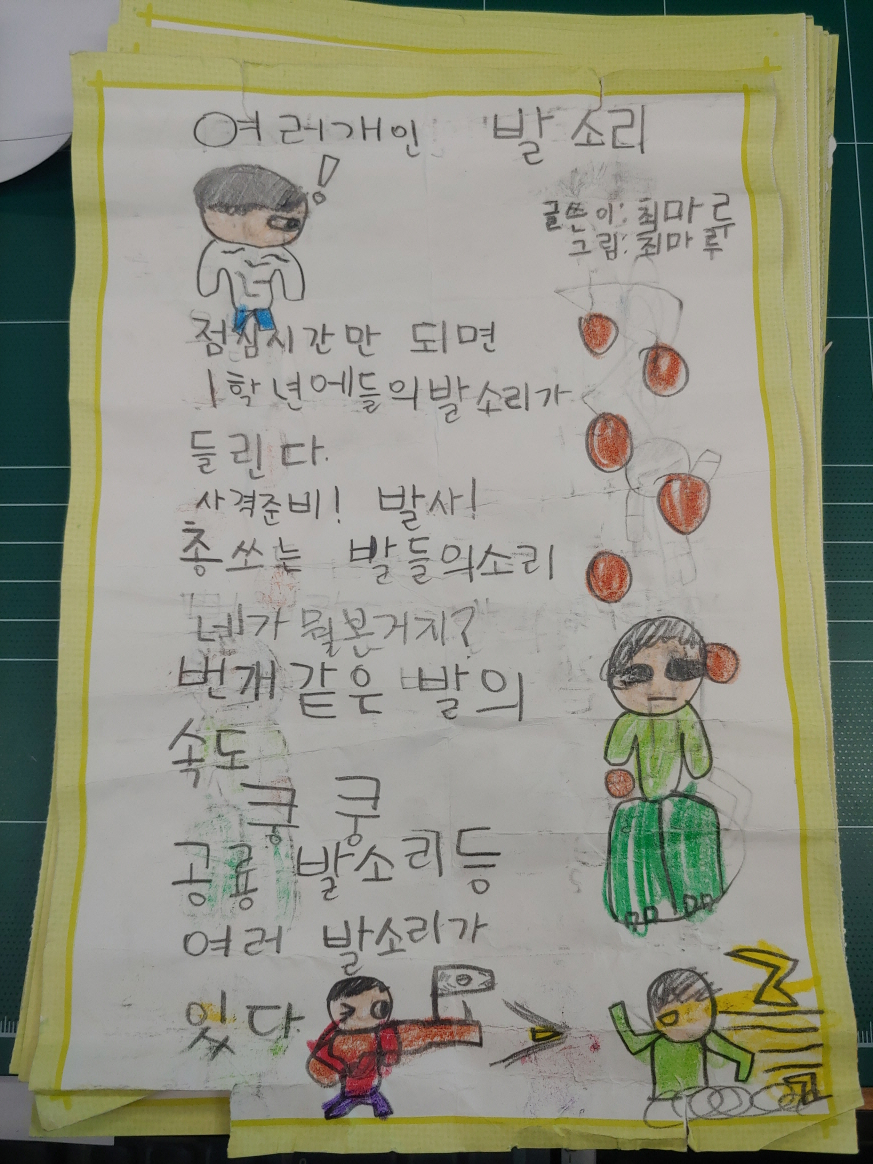 여러개인 발소리
글쓴이: 최마루
그림: 최마루
너
점심시간만 되면
1학년에들의발소리가
들린다.
사격준비! 발사!
총쏘는 발들의소리
네가 뭘본거지?
번개같은 발의
속도
쿵 쿵
공룡 발소리등
여러 발소리가
있다